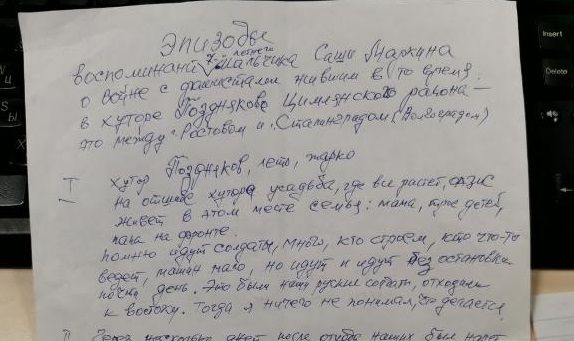 Эпизоды
воспоминаний 7 летнего мальчика Саши Маркина
о войне с фашистами жившим в то время
в хуторе Поздняково Цимлянского района –
это между г. Ростовом и г. Сталинградом (Волгоградом)
I хутор Поздняков, лето, жарко
На отшибе хутора усадьба, где все растет, оазис
живет в этом месте семья: мама, трое детей,
папа на фронте.
помню идут солдаты, много, кто строем, кто что-то
ведет, машин мало, но идут и идут без остановки
почти день. Это были наши русские солдаты, отходили
к востоку. Тогда я ничего не понимал, что делается
II Через несколько дней после отхода наших был налет
Insert
Delete